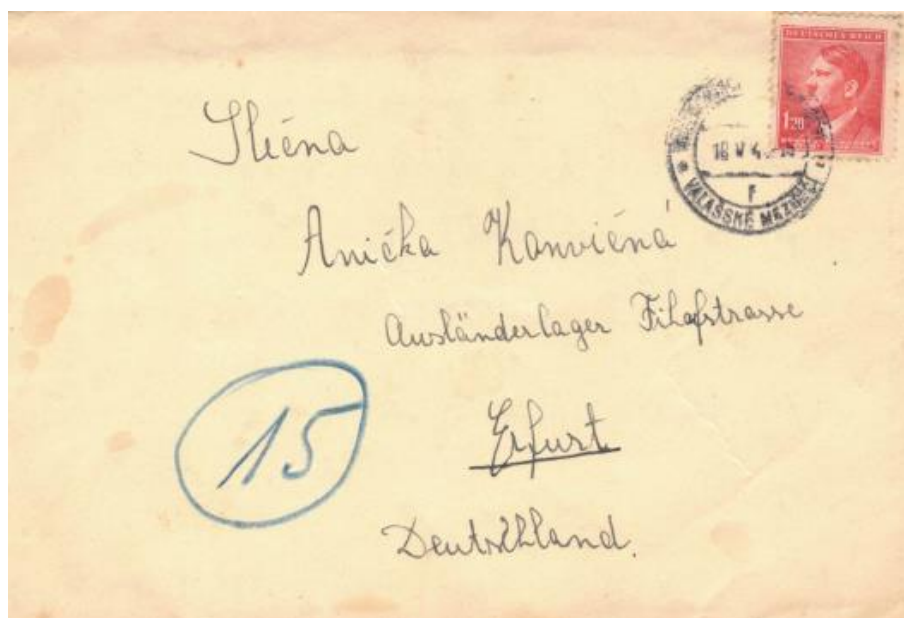 DEUTSCHES REICH
1.20
18 V 4
F
VALAŠSKÉ MEZIŘÍČÍ
Slečna
Anička Konvičná
Ausländerlager Filofstrasse
Erfurt
Deutschland.
15